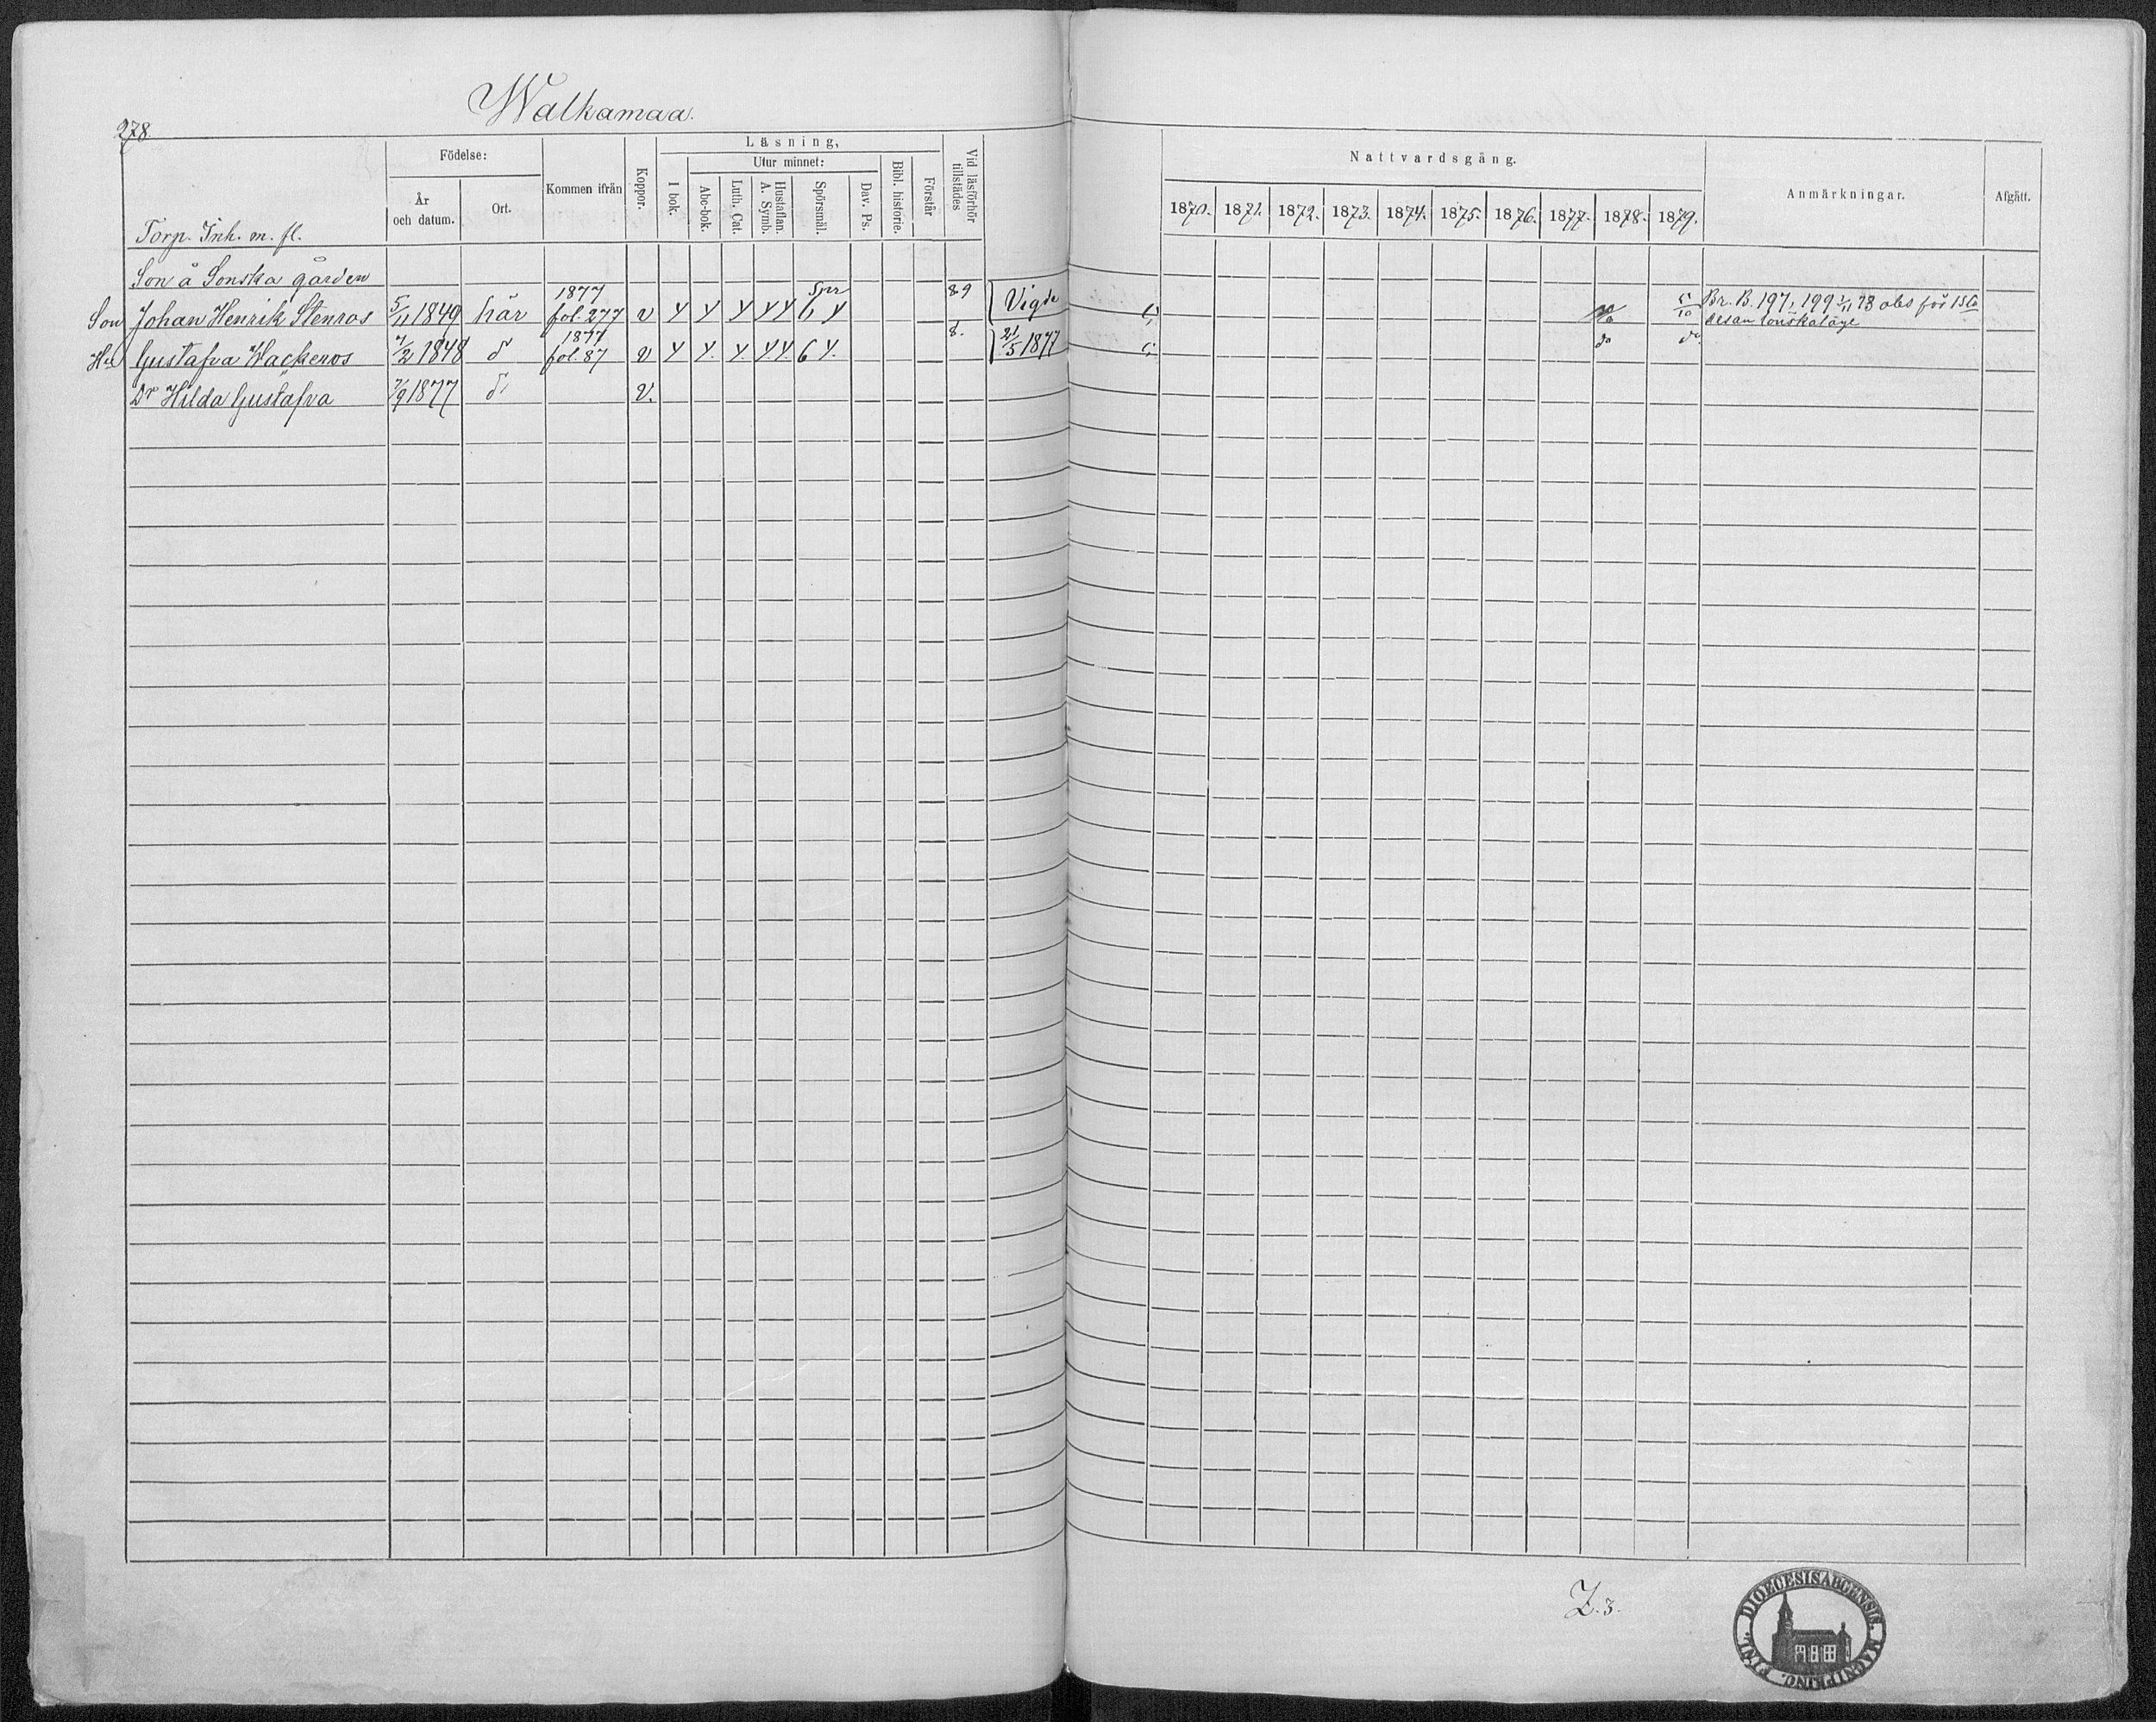 Walkamaa.
278.
Födelse:
År och datum.
Ort.
Kommen ifrån
Koppor.
Läsning,
I bok.
Utur minnet:
Abc-bok.
Luth. Cat.
Hustaflan. A. Symb.
Spörsmål.
Dav. Ps.
Bibl. historie.
Förstår
Vid läsförhör tillstädes
Nattvardsgång.
1870. 1871. 1872. 1873. 1874. 1875. 1876. 1877. 1878. 1879.
Anmärkningar.
Afgått.
Torp. Inh. m. fl.
Son å Sonska gården
Son Johan Henrik Stenros 5/11 1849 här 1877 fol. 277 v 89 Vigde 5/10 Br. B. 197, 199
Hu Gustafva Wackenos 7/2 1848 d 1877 fol. 87 v 6 8. 21/5 1877 do do
Dr Hilda Gustafva 7/9 1877 d v.
Z. 3.
DIOECESIS ABOENSIS. MAGN. PRINC. FINL.